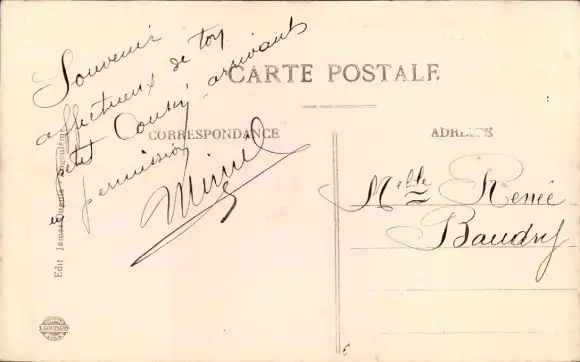 Souvenir
affectueux de ton
petit Cousin, arrivant
en permission
CARTE POSTALE
CORRESPONDANCE
ADRESSE
Melle Renée
Baudry